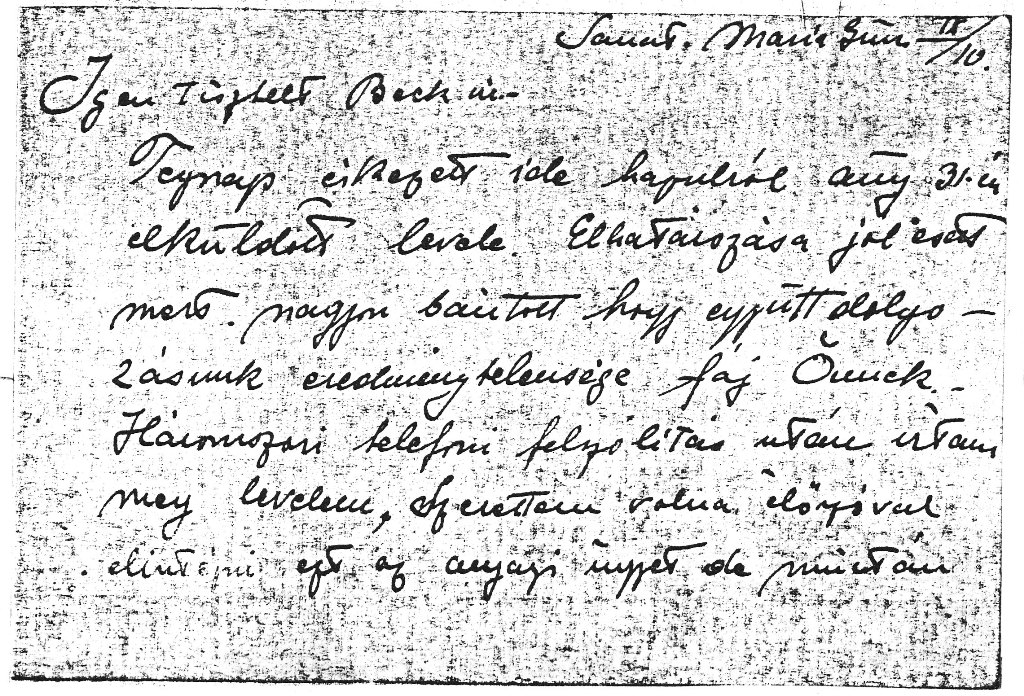 Sanat. Mária Grün IX/10.
Igen Tisztelt Beck úr-
Tegnap érkezett ide aug 31.-én
elküldött levele. Elhatározása jól esett
mert nagyon bántott hogy együttdolgo-
zásunk eredménytelensége fáj Önnek.-
Háromszori telefoni felszólítás után írtam
meg levelem, Szerettem volna élőszóval
elintézni ezt az anyagi ügyet de miután